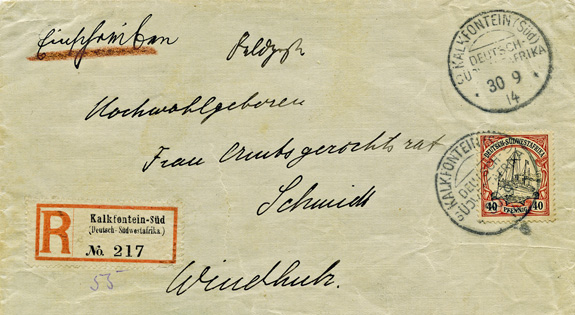 Einschreiben
Feldpost
KALKFONTEIN (Süd)
DEUTSCH-
SÜDWESTAFRIKA
30 9
14
Hochwohlgeboren
Frau Amtsgerichtsrat
Schmidt
Windhuk.
R
Kalkfontein-Süd
(Deutsch-Südwestafrika.)
No. 217
55
KALKFONTEIN
DEUTSCH-SÜDWESTAFRIKA
40 PFENNIG 40